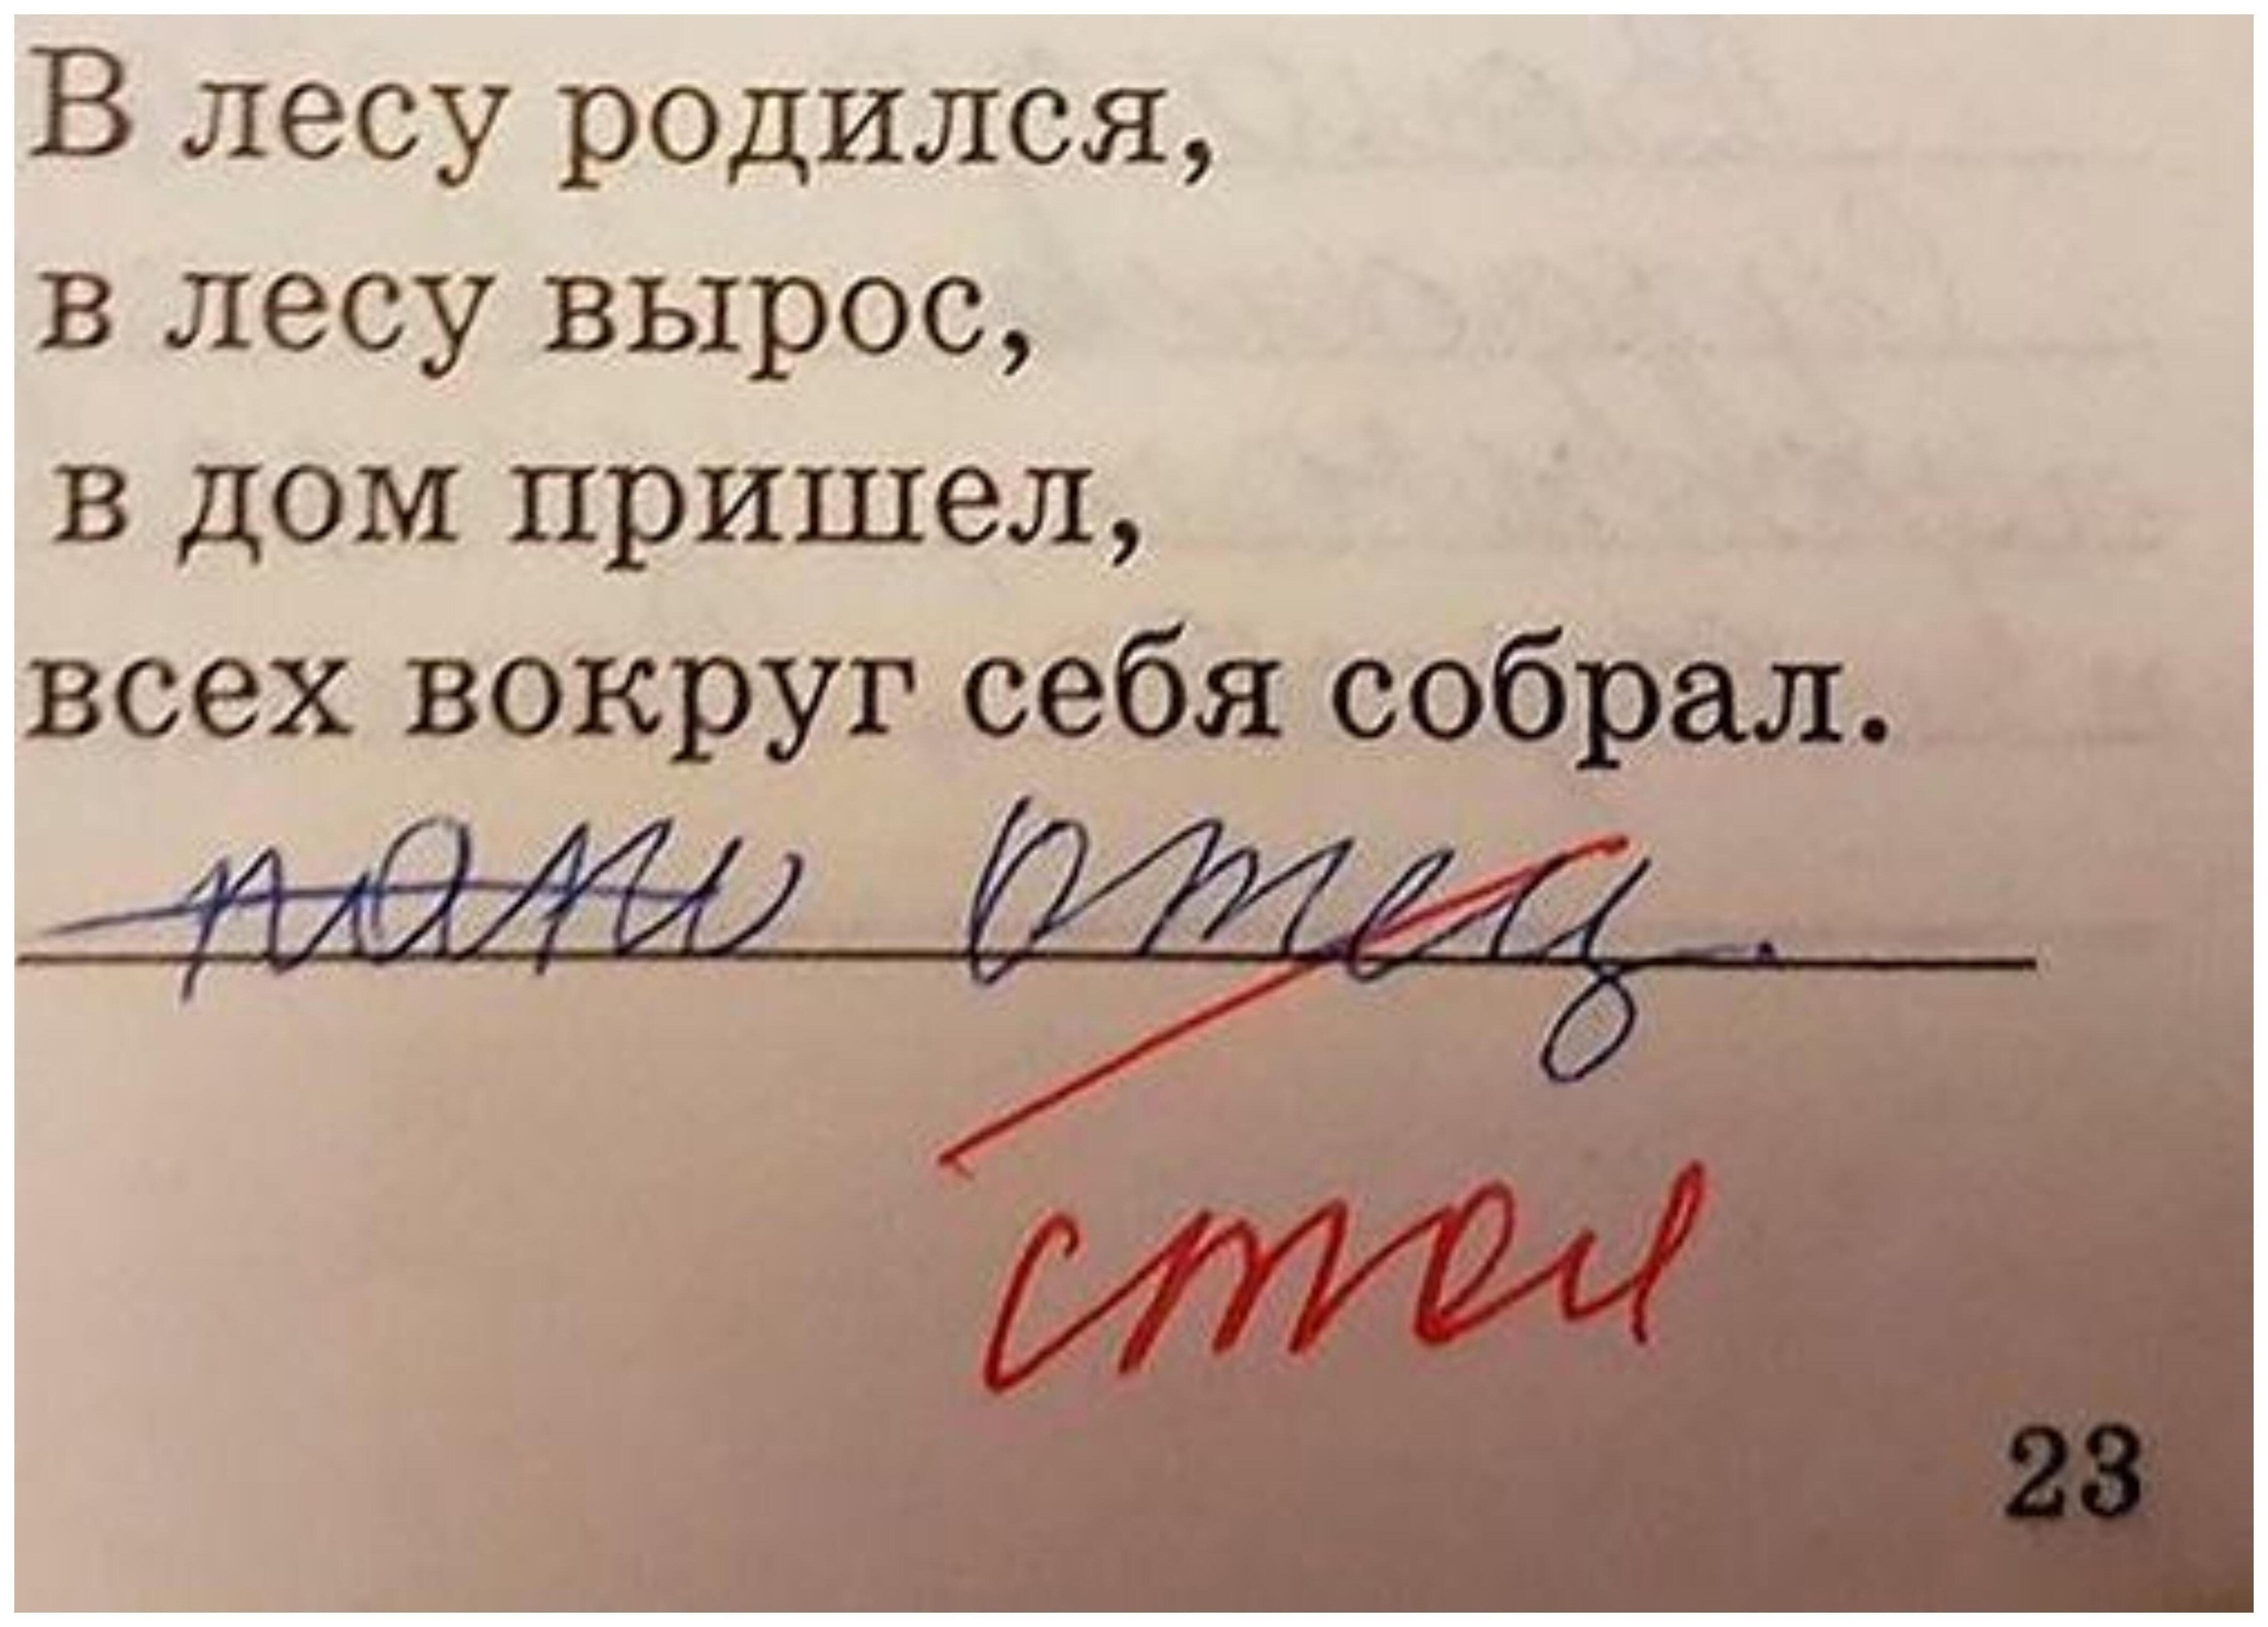 В лесу родился,
в лесу вырос,
в дом пришел,
всех вокруг себя собрал.
папа отец.
стол
23